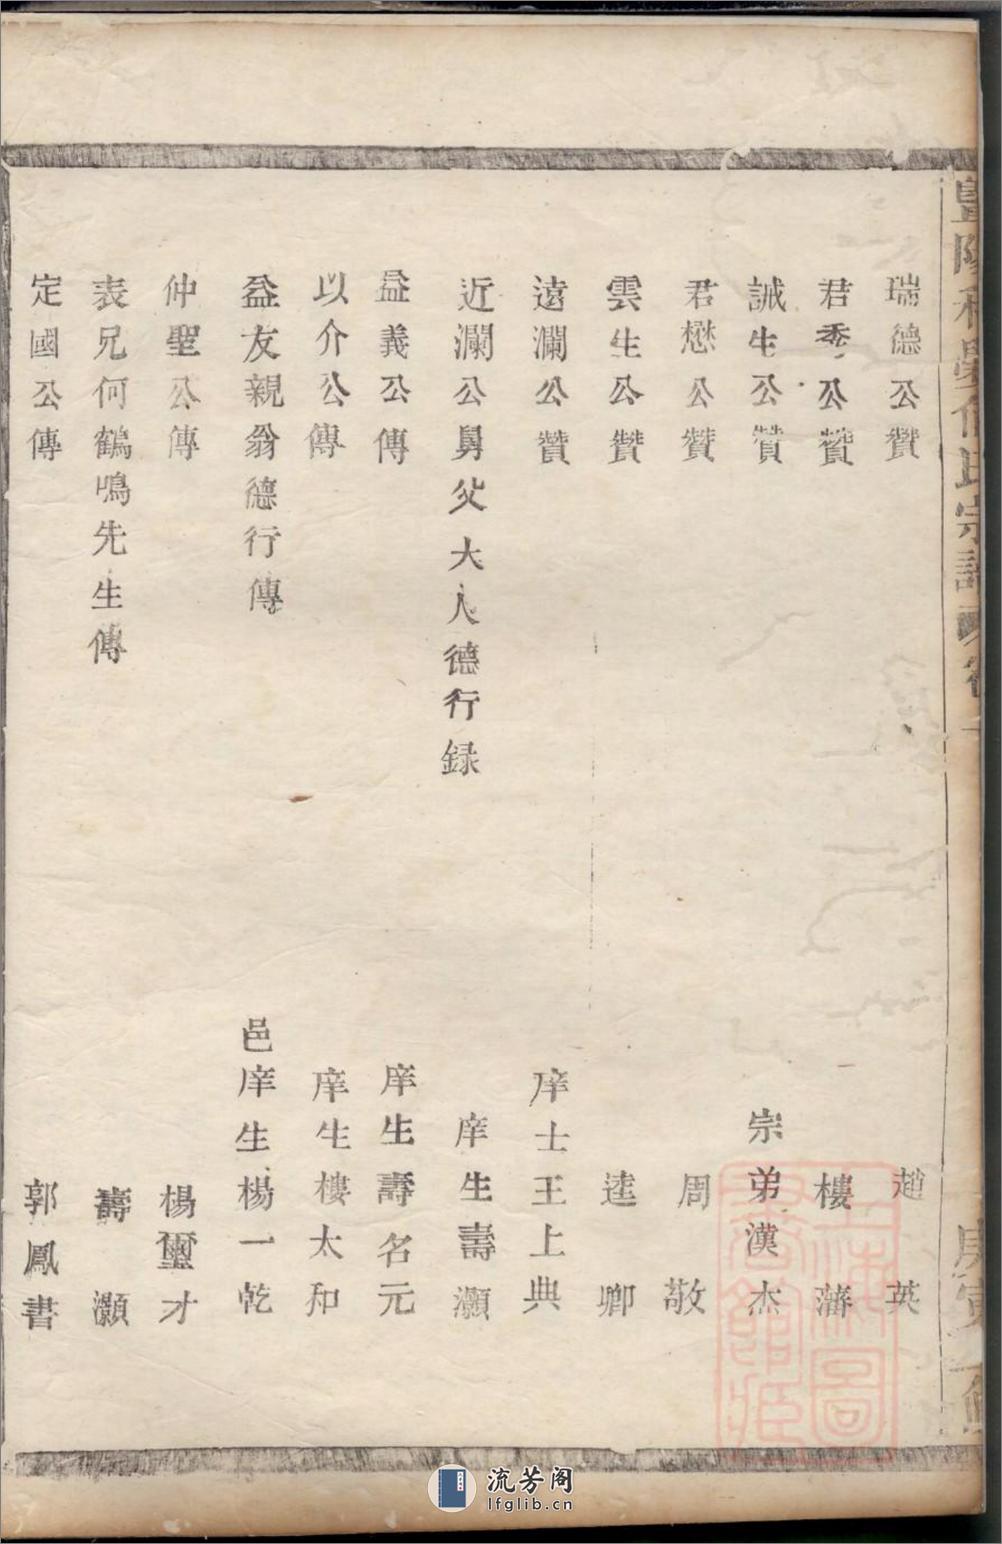 瑞德公贊 趙英
君秀公贊 樓藩
誠生公贊 宗弟漢杰
君懋公贊 周敬
雲生公贊 逵卿
遠瀾公贊 庠士王上典
近瀾公舅父大人德行録 庠生壽灝
益義公傳 庠生壽名元
以介公傳 庠生樓太和
益友親翁德行傳 邑庠生楊一乾
仲聖公傳 楊璽才
表兄何鶴鳴先生傳 壽灝
定國公傳 郭鳳書
宗譜
庚寅
上海圖書館藏
流芳阁
lfglib.cn